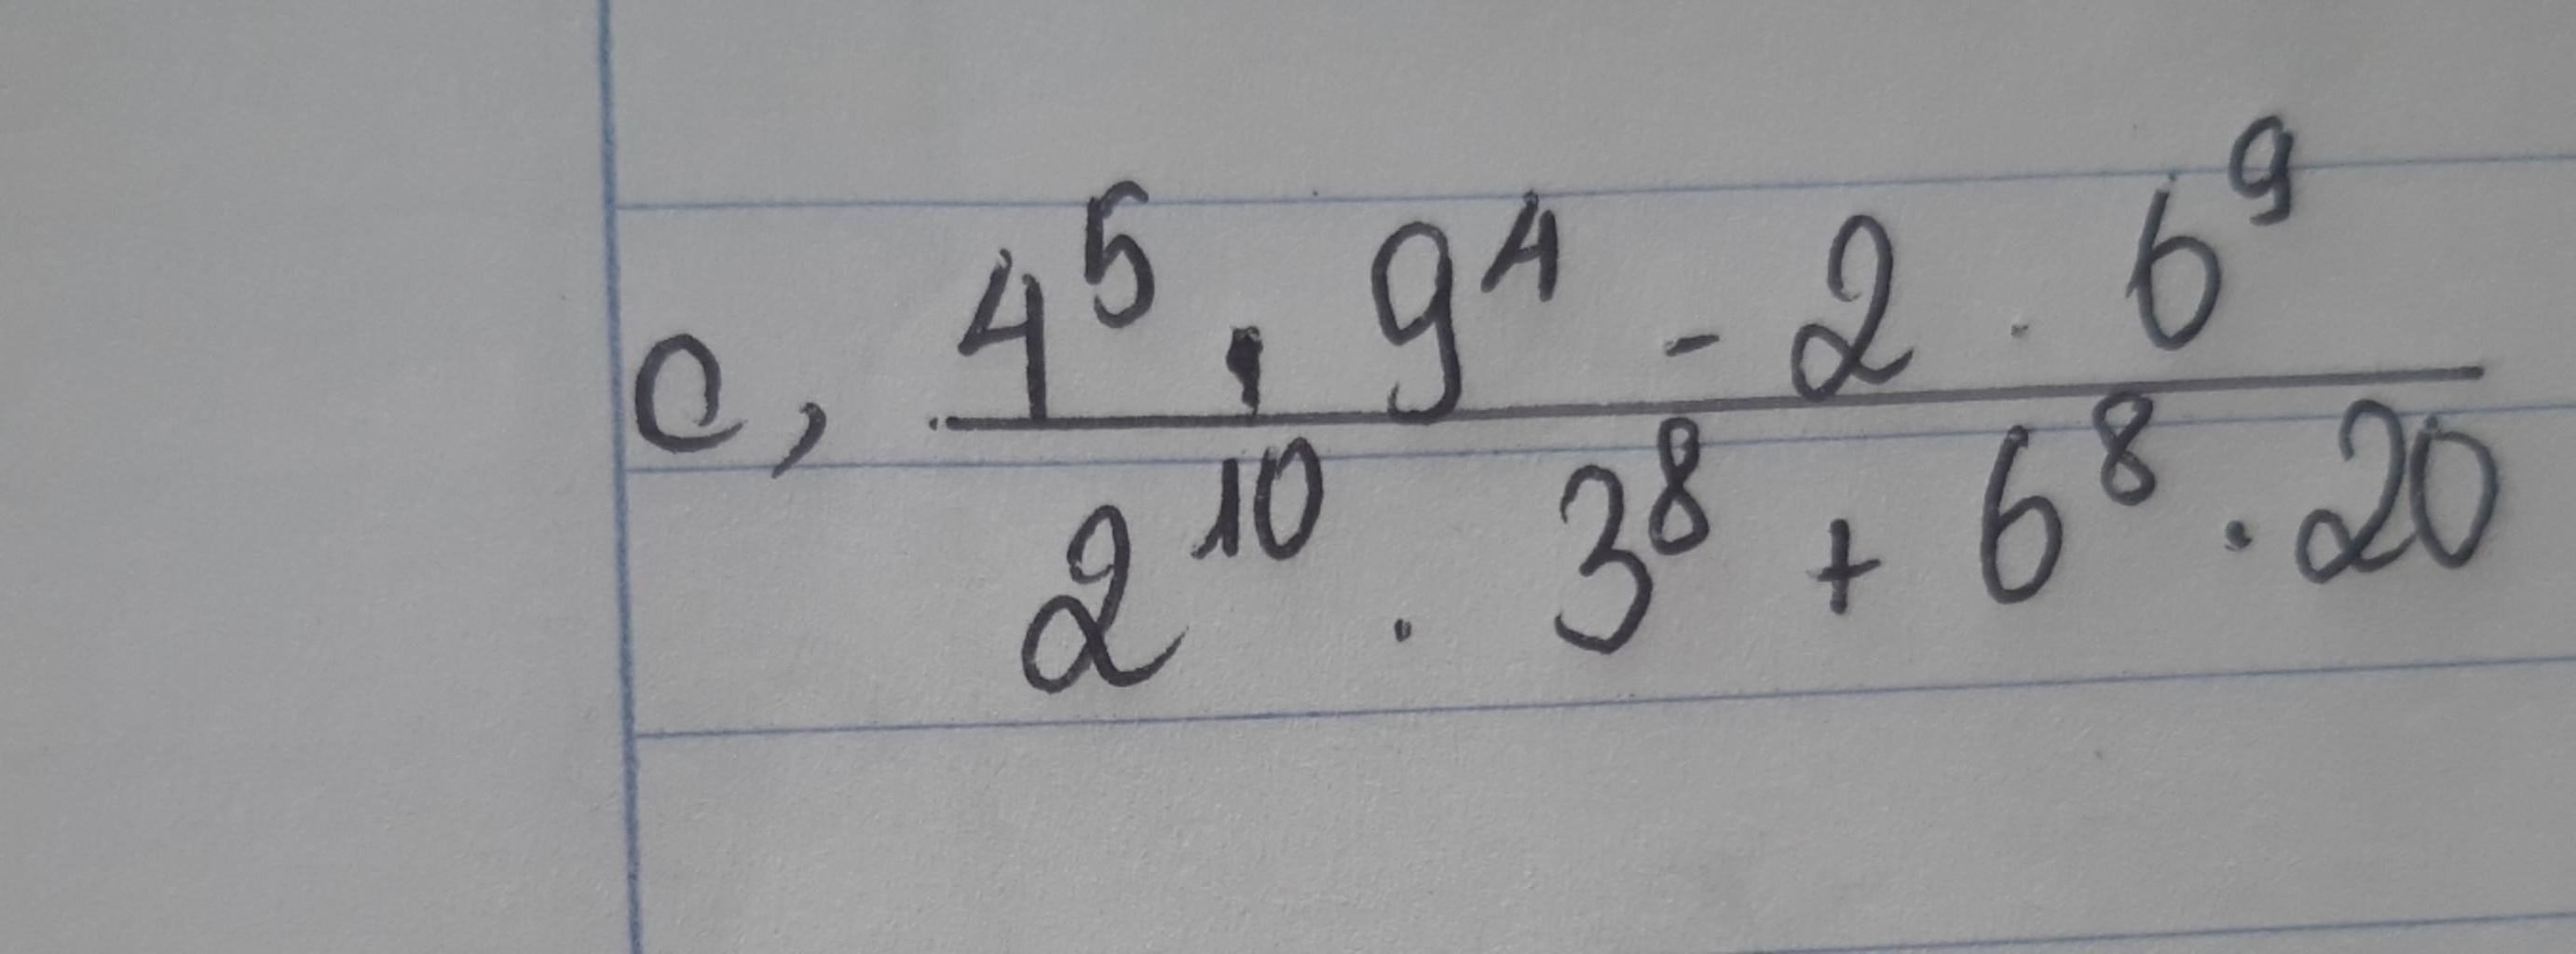 c, 4⁵ . 9⁴ - 2 . 6⁹
2¹⁰ . 3⁸ + 6⁸ . 20